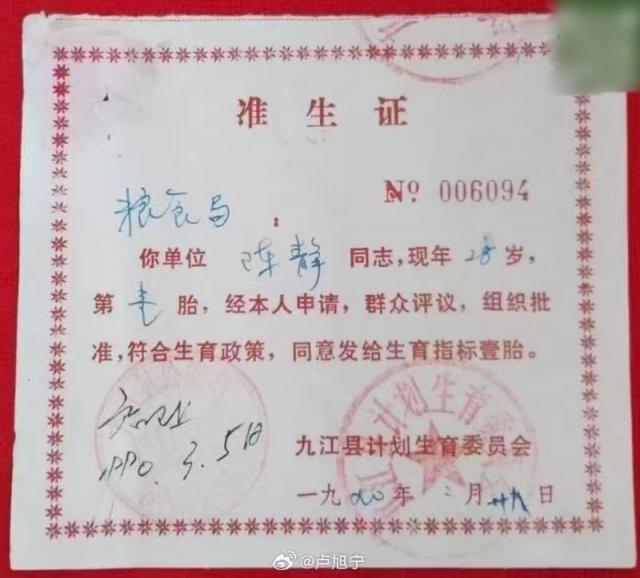 准生证
No 006094
粮食局：
你单位 陈静 同志，现年 28 岁，
第 壹 胎，经本人申请，群众评议，组织批
准，符合生育政策，同意发给生育指标壹胎。
1990.3.5日
九江县计划生育委员会
一九九〇年 二月 廿八日
计划生育委
@卢旭宁